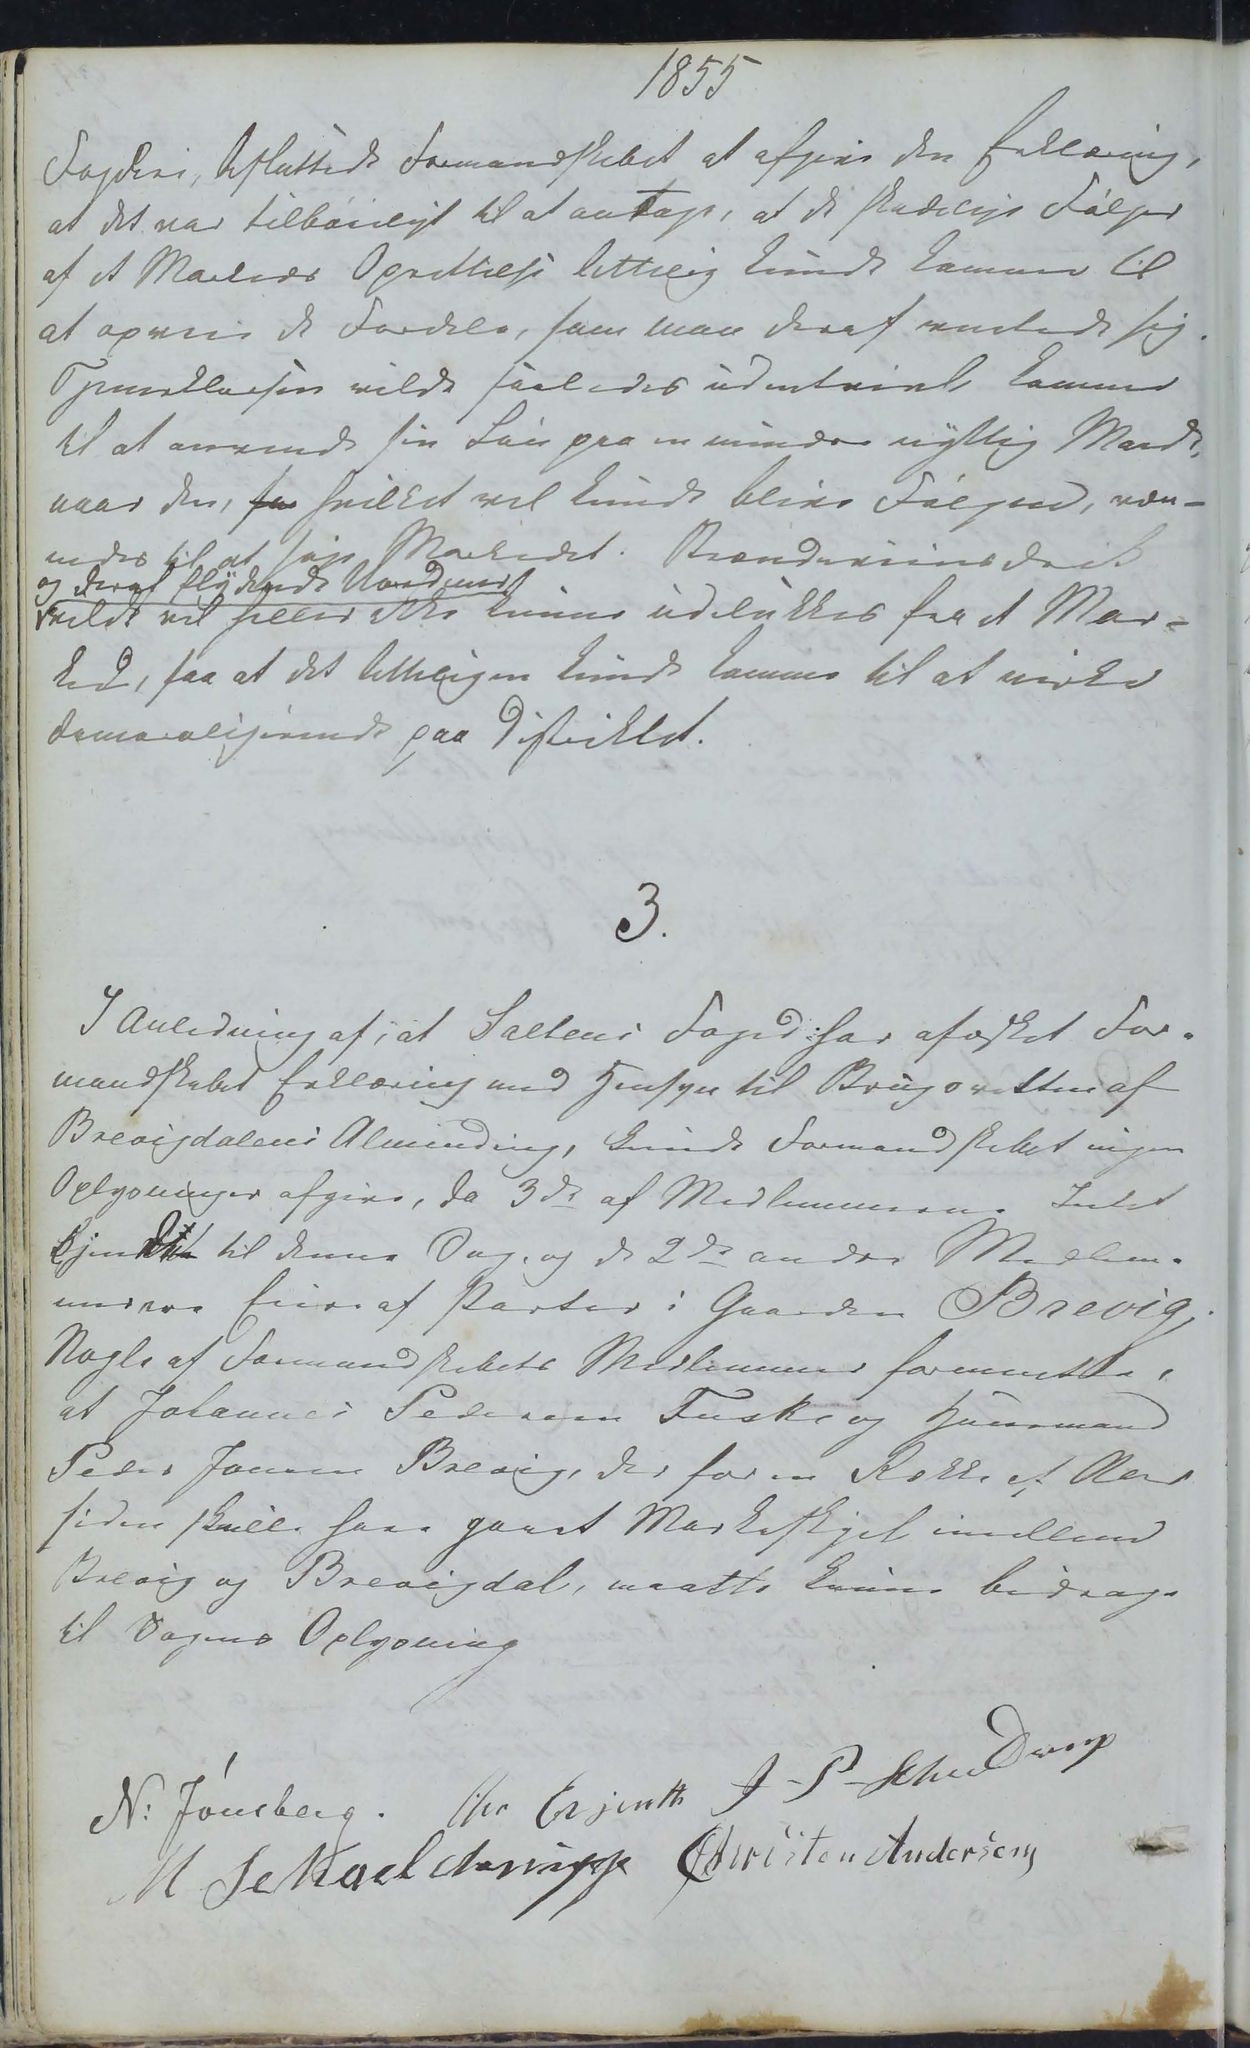 1855
Fogderi, besluttede Formandskabet at afgive den Erklæring,
at det var tilbøieligt til at antage, at de skadelige Følger
af et Markeds Oprettelse letteligt kunde komme til
at opveie de Fordele, som man deraf ventede sig.
Tjenerklassen vilde saaledes udentvivl komme
til at anvende sin Løn paa en mindre nyttig Maade,
naar den, hvilket vel kunde blive Følgen, væn-
nedes til at søge Markedet. Brændeviinsdrik
og deraf flydende Uordener
vilde vel heller ikke kunne udelukkes fra et Mar-
ked, saa at det letteligen kunde komme til at virke
demoraliserende paa Distriktet.
3.
I Anledning af, at Saltens Foged har afæsket For-
mandskabet Erklæring med Hensyn til Brugsretten af
Brevigdalens Alminding, kunde Formandskabet ingen
Oplysninger afgive, da 3de af Medlemmerne Intet
kjendte til denne Sag, og de 2de andre Medlem-
merne Eiere af Parter i Gaarden Brevig.
Nogle af Formandskabets Medlemmer formente,
at Johannes Pedersen Fuske og Huusmand
Peder Jonsen Brevig, der for en Række af Aar
siden skulle have gaaet Markeskjel imellem
Brevig og Brevigdal, maatte kunne bidrage
til Sagens Oplysning
N: Jónsberg. J-P-Scheldrup
M Schjeldrupp Christen Andersen